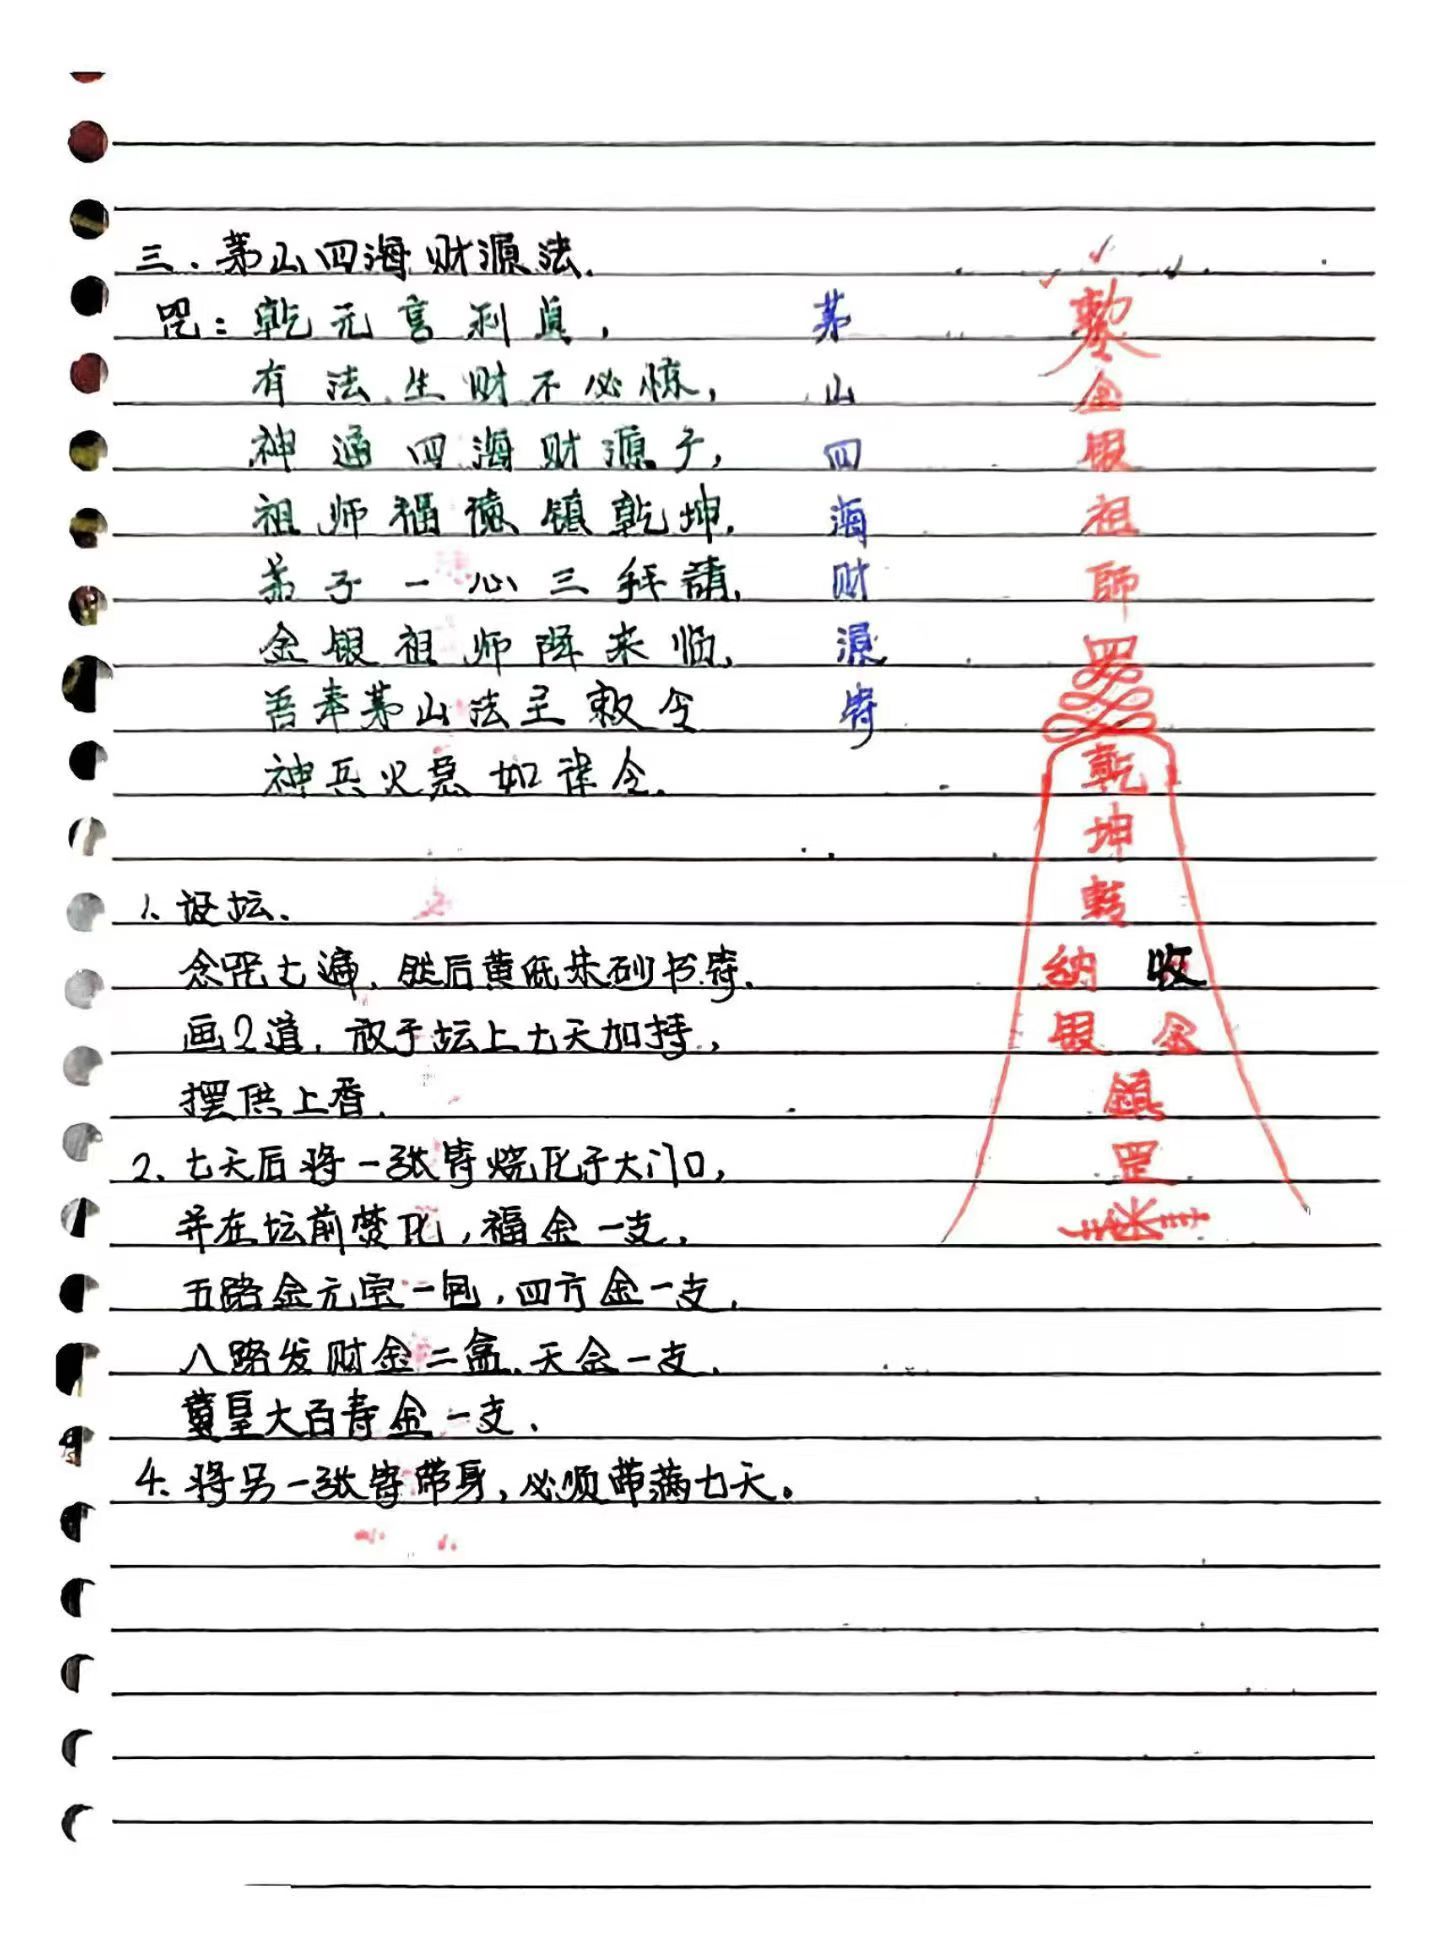 三.茅山四海财源法.
咒：乾元亨利貞，
有法生财不必惊，
神通四海财源子，
祖师福德镇乾坤.
弟子一心三拜請.
金银祖师降来临.
吾奉茅山法主敕令
神兵火急如律令.
茅山四海财源
敕
金
银
祖
師
罡
乾
坤
轉
納 收
銀 金
鎮
罡
1.设坛.
念咒七遍，然后黄纸朱砂书符.
画2道，放于坛上七天加持，
摆供上香.
2.七天后将一张符烧化于大门口，
并在坛前焚化，福金一支.
五路金元宝一包，四方金一支.
八路发财金二盒.天金一支.
大百寿金一支.
4.将另一张符带身，必须带满七天。